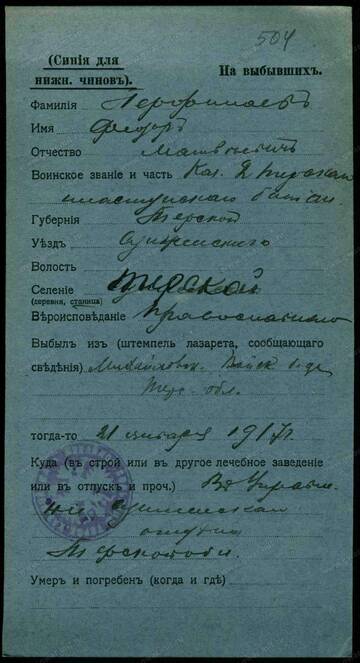 504
(Синія для
нижн. чиновъ).
На выбывшихъ.
Фамилія
Имя Федоръ
Отчество Матвѣевичъ
Воинское званіе и часть Каз. 2 Терскаго
пластунскаго батал.
Губернія Терской
Уѣздъ Сунженскаго
Волость
Селеніе
(деревня, станица)
Вѣроисповѣданіе Православнаго
Выбылъ изъ (штемпель лазарета, сообщающаго
свѣдѣнія) Михайловск. Войск.
Терс. обл.
тогда-то 21 января 1917 г.
Куда (въ строй или въ другое лечебное заведеніе
или въ отпускъ и проч.) Въ Управл.
Сунженскаго
отдѣла
Терской обл.
Умеръ и погребенъ (когда и гдѣ)